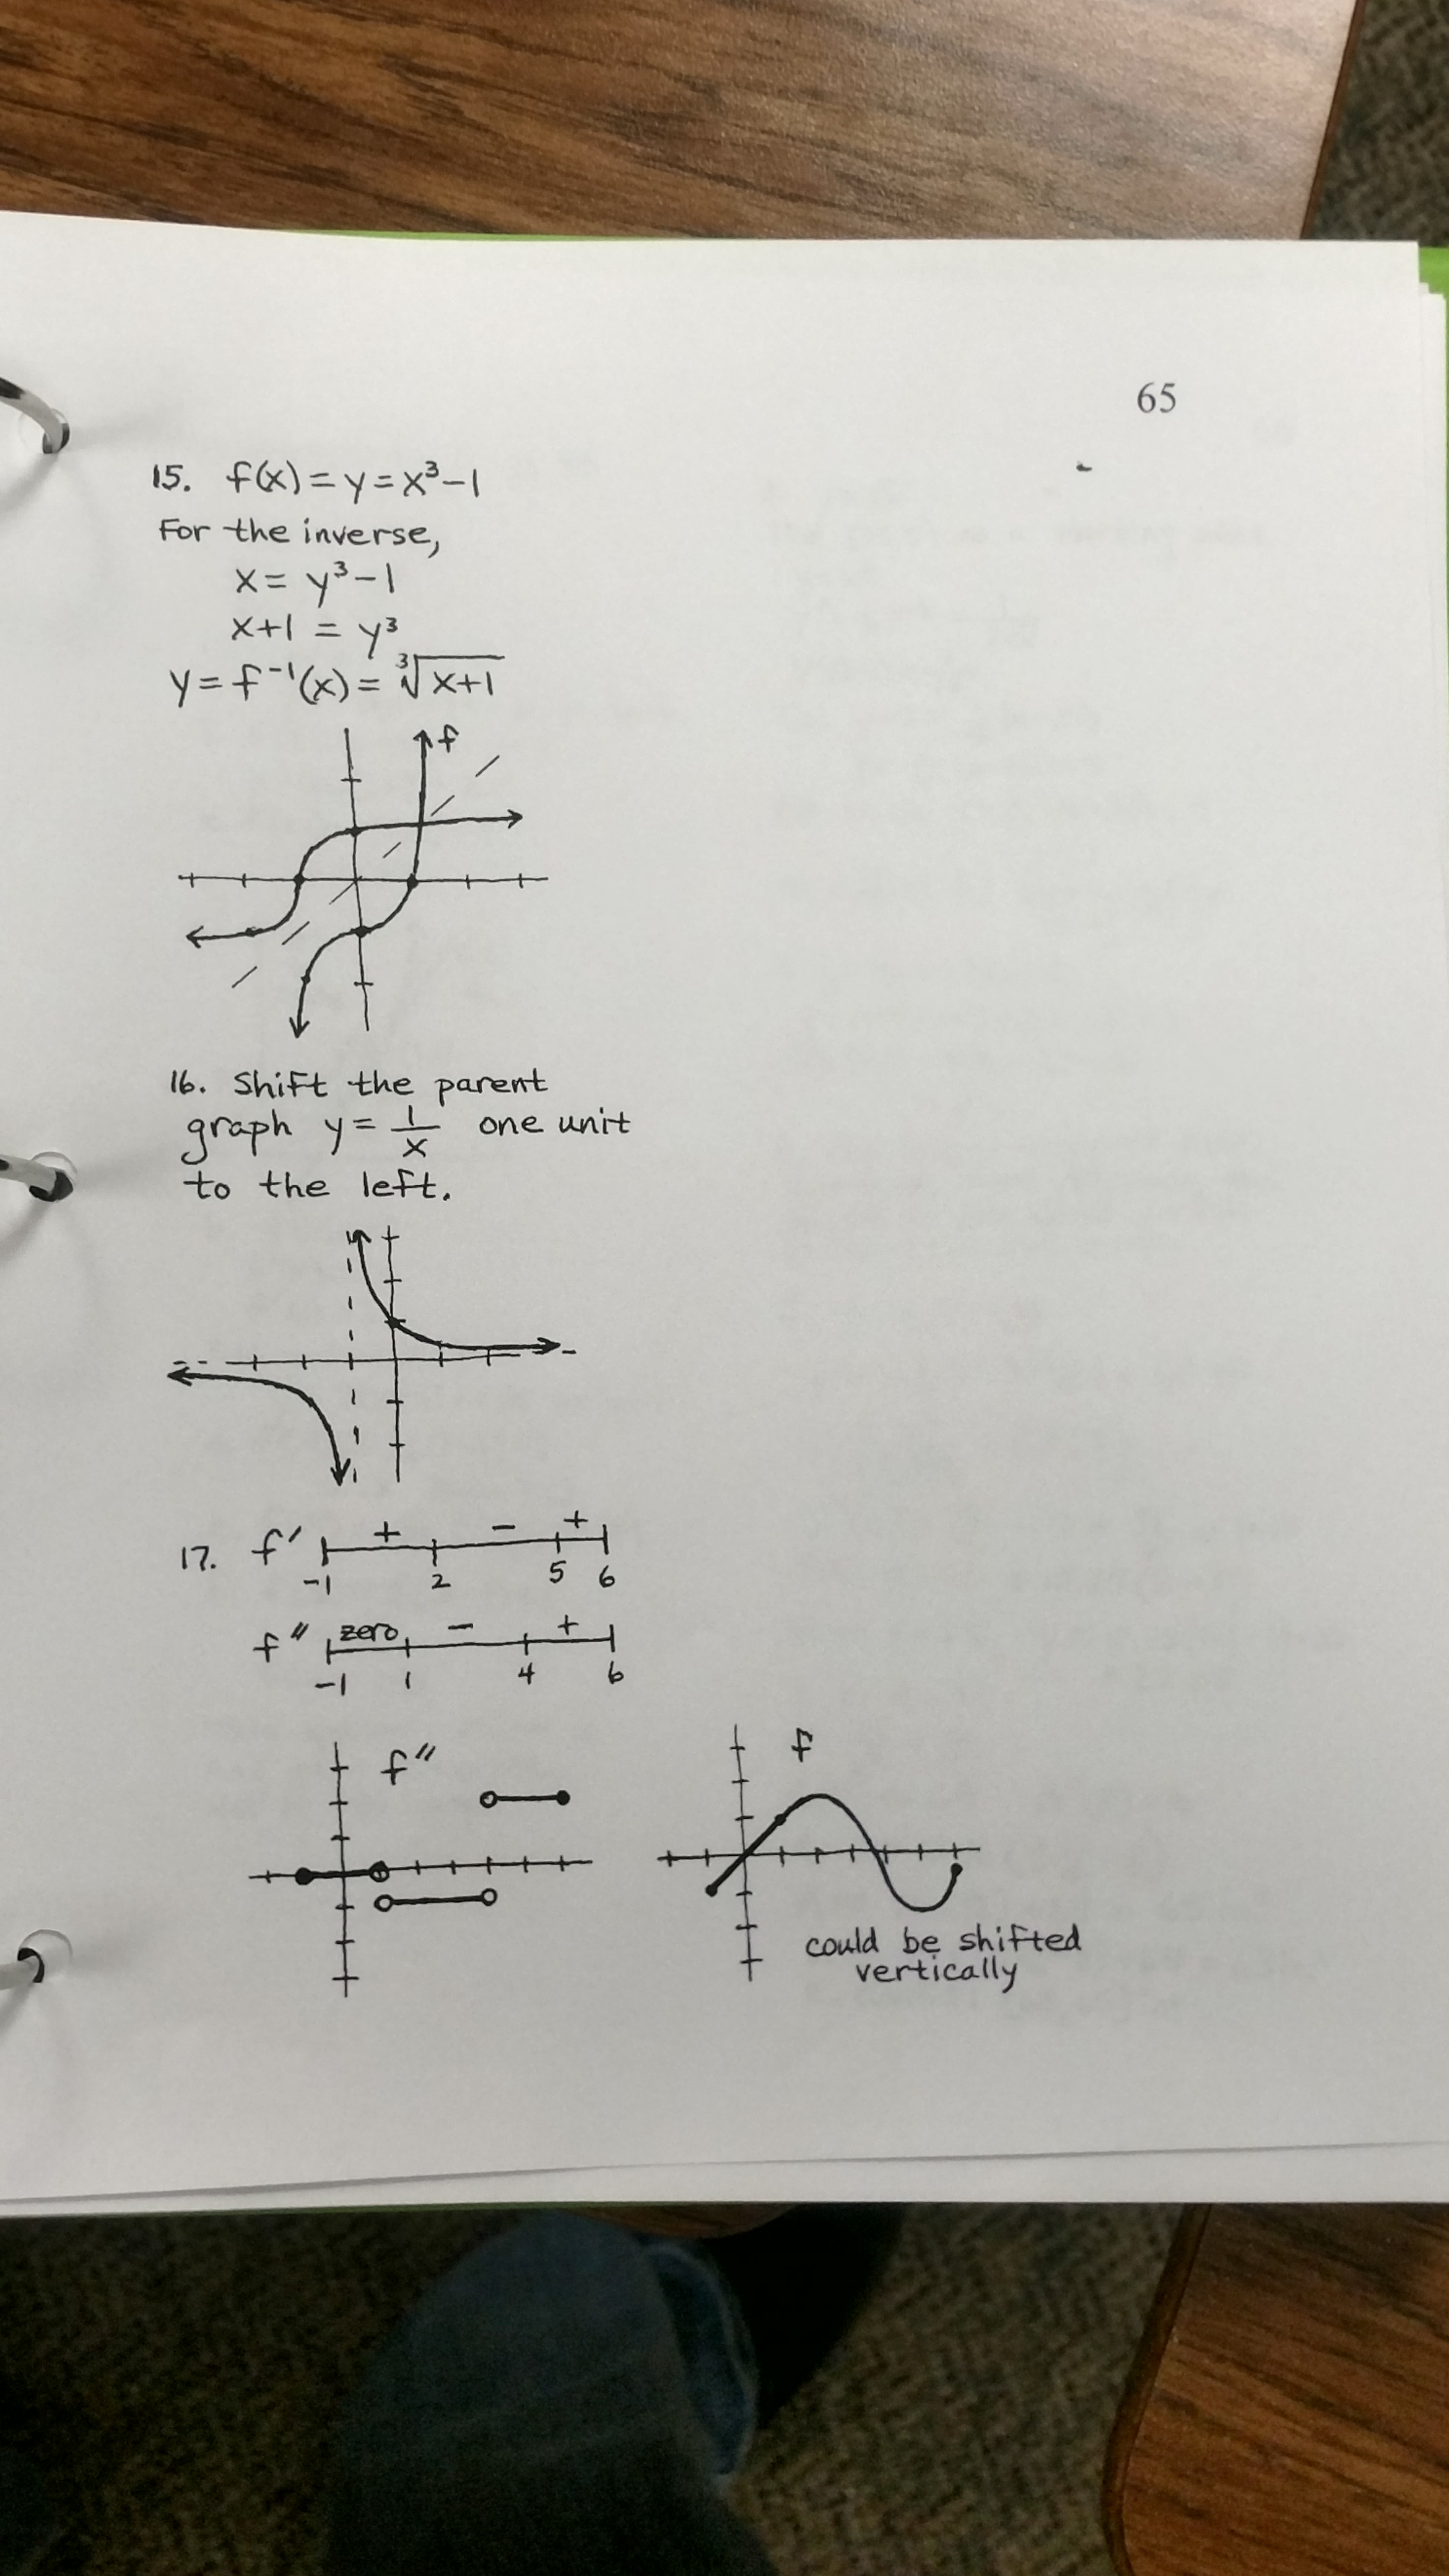 65
15. f(x) = y = x³ - 1
For the inverse,
x = y³ - 1
x+1 = y³
y = f⁻¹(x) = ∛(x+1)
f
16. Shift the parent
graph y = 1/x one unit
to the left.
17. f′ + − +
-1 2 5 6
f″ zero − +
-1 1 4 6
f″
f
could be shifted
vertically